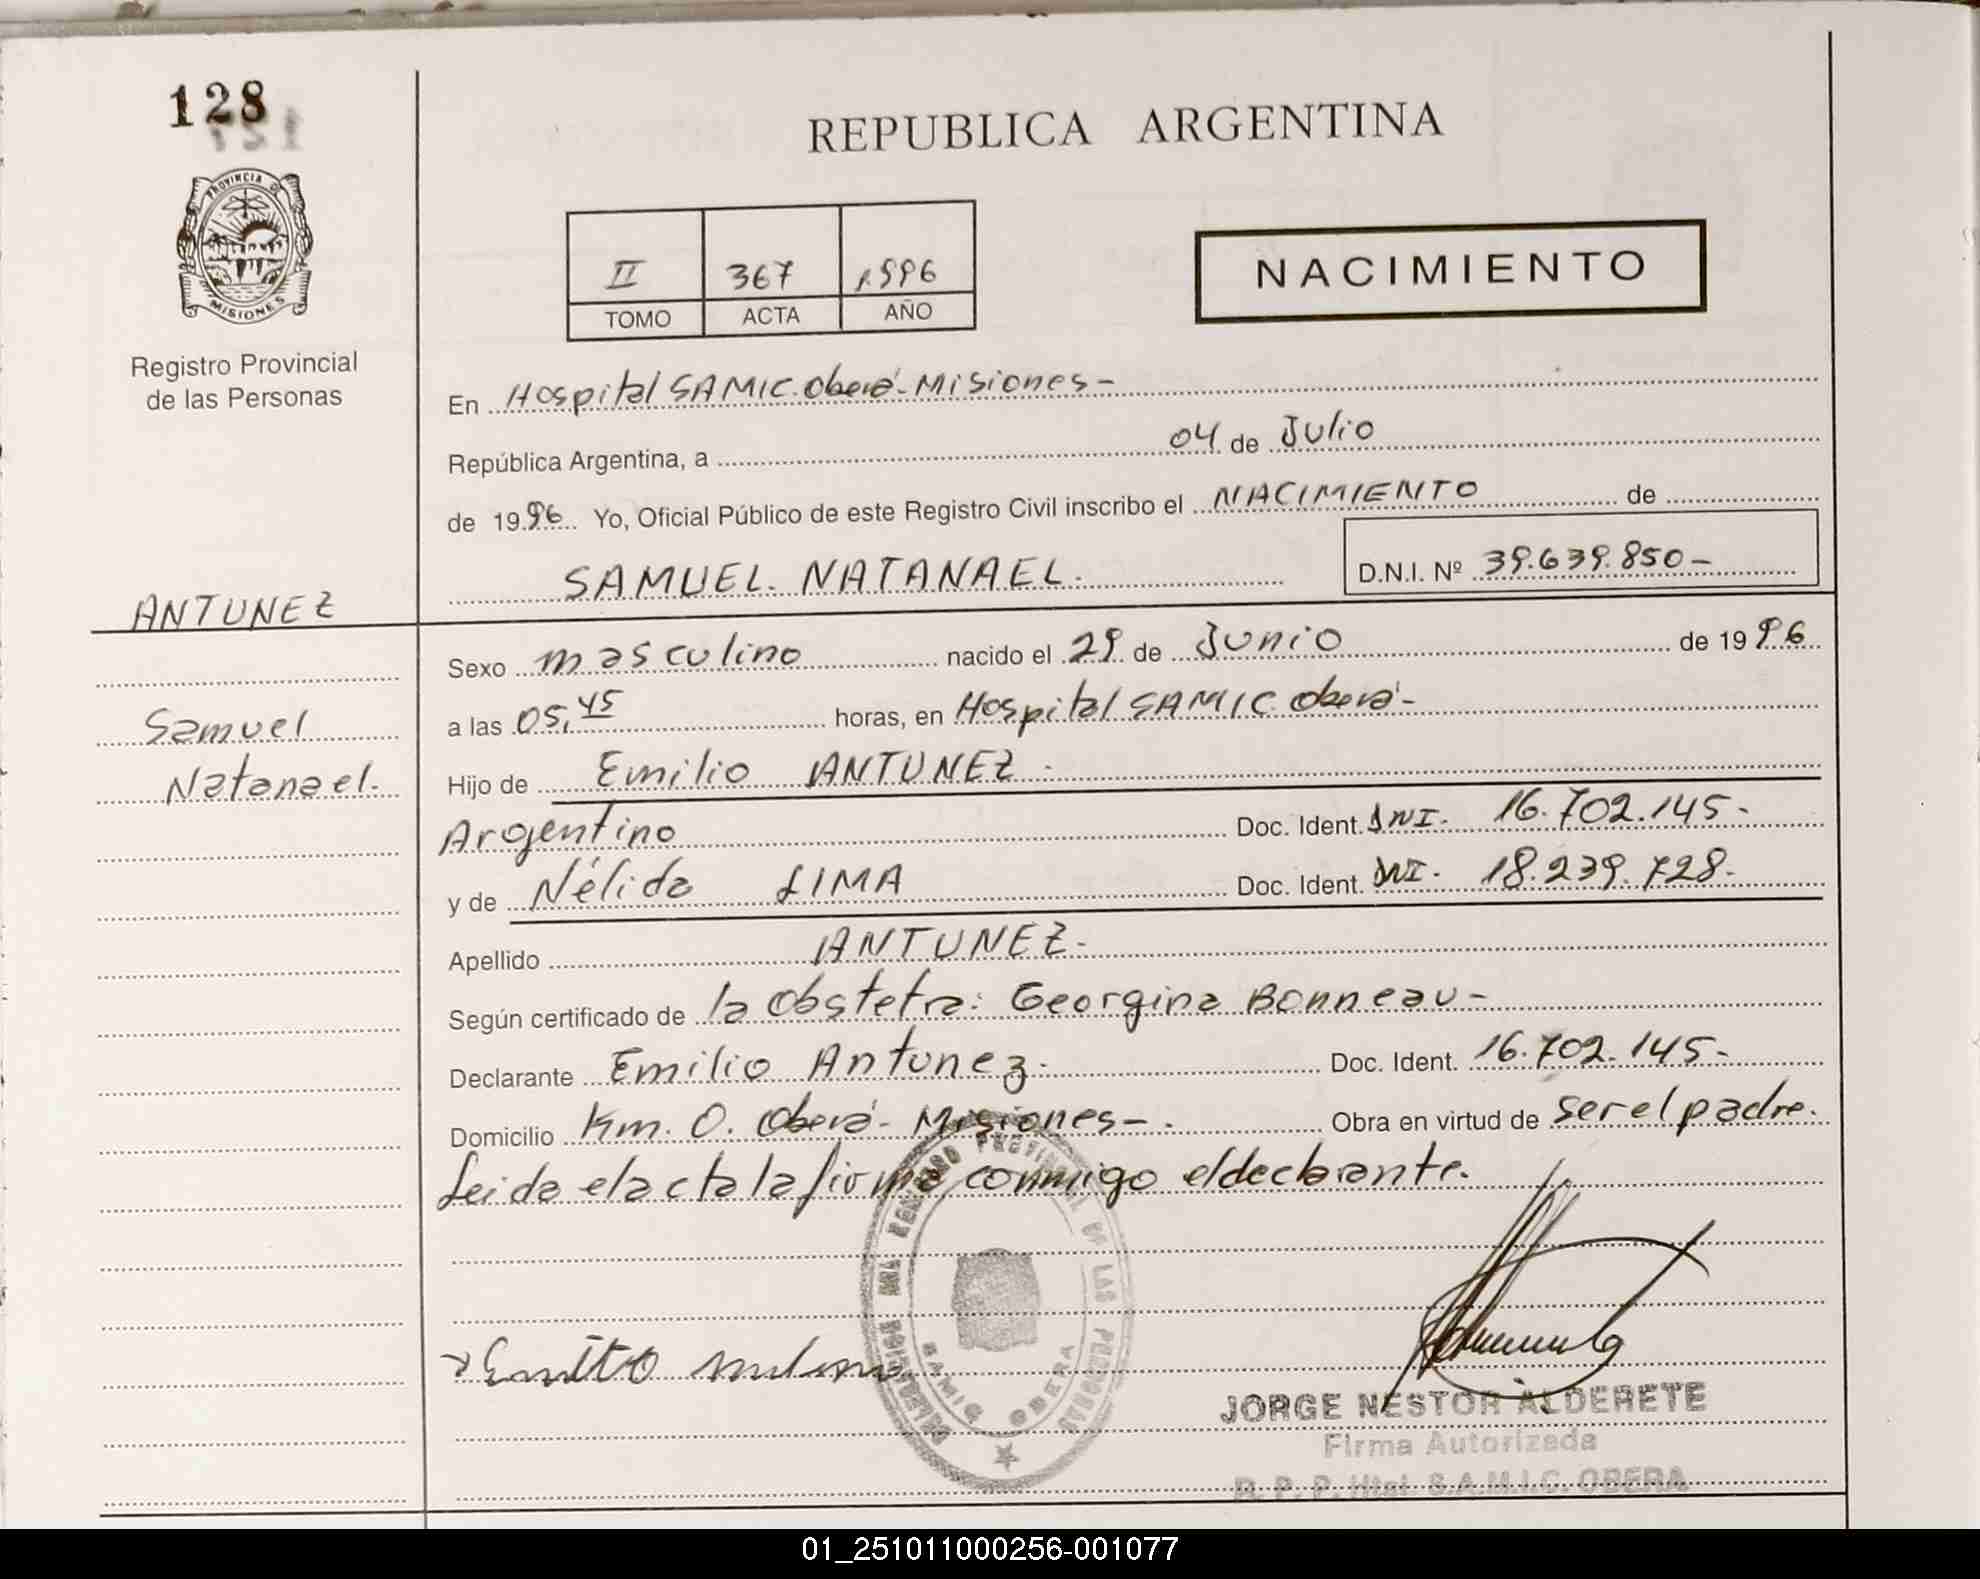 128
PROVINCIA DE
MISIONES
Registro Provincial
de las Personas
REPUBLICA ARGENTINA
II 367 1996
TOMO ACTA AÑO
NACIMIENTO
En Hospital SAMIC. Oberá - Misiones -
República Argentina, a 04 de Julio
de 1996 Yo, Oficial Público de este Registro Civil inscribo el NACIMIENTO de
SAMUEL NATANAEL. D.N.I. Nº 39.639.850 -
ANTUNEZ
Samuel
Natanael.
Sexo masculino nacido el 29 de Junio de 1996
a las 05,45 horas, en Hospital SAMIC Oberá -
Hijo de Emilio ANTUNEZ -
Argentino Doc. Ident. DNI. 16.702.145 -
y de Nélida LIMA Doc. Ident. DNI. 18.239.728.
Apellido ANTUNEZ -
Según certificado de la Obstetra: Georgina Bonneau -
Declarante Emilio Antunez - Doc. Ident. 16.702.145 -
Domicilio Km. 0. Oberá - Misiones - . Obra en virtud de ser el padre.
Leida el acta la firma conmigo el declarante.
REGISTRO PROVINCIAL DE LAS PERSONAS
SAMIC OBERA
JORGE NESTOR ALDERETE
Firma Autorizada
R. P. P. Htal. S.A.M.I.C. OBERA
01_251011000256-001077